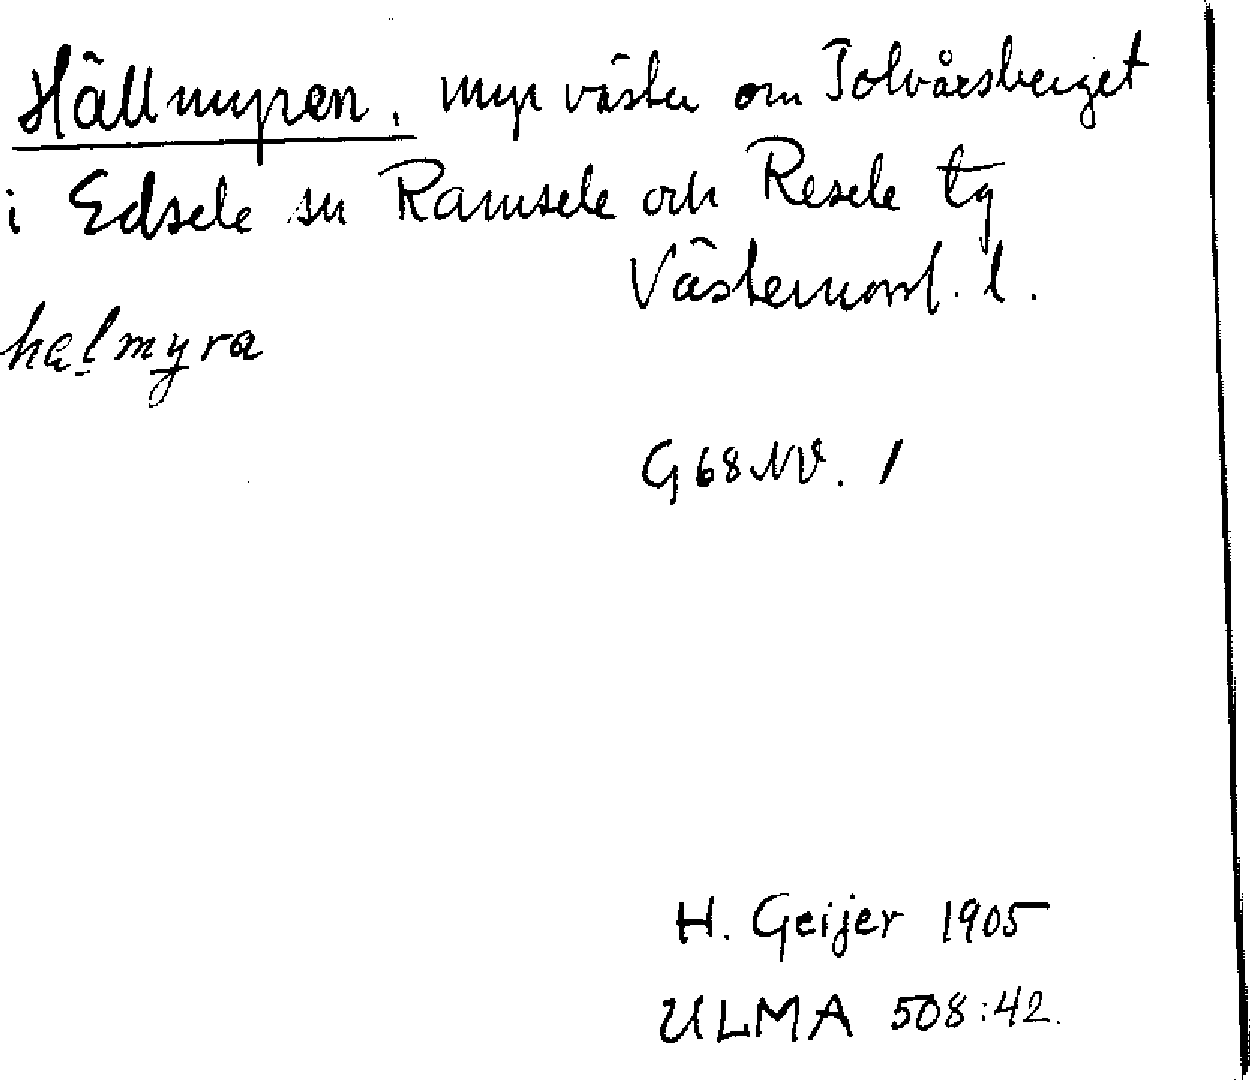 Hällmyren, myr väster om Tolvårsberget
i Edsele sn Ramsele och Resele tg
Västernorrl. l.
halmyra
G68NV. 1
H. Geijer 1905
ULMA 508:42.